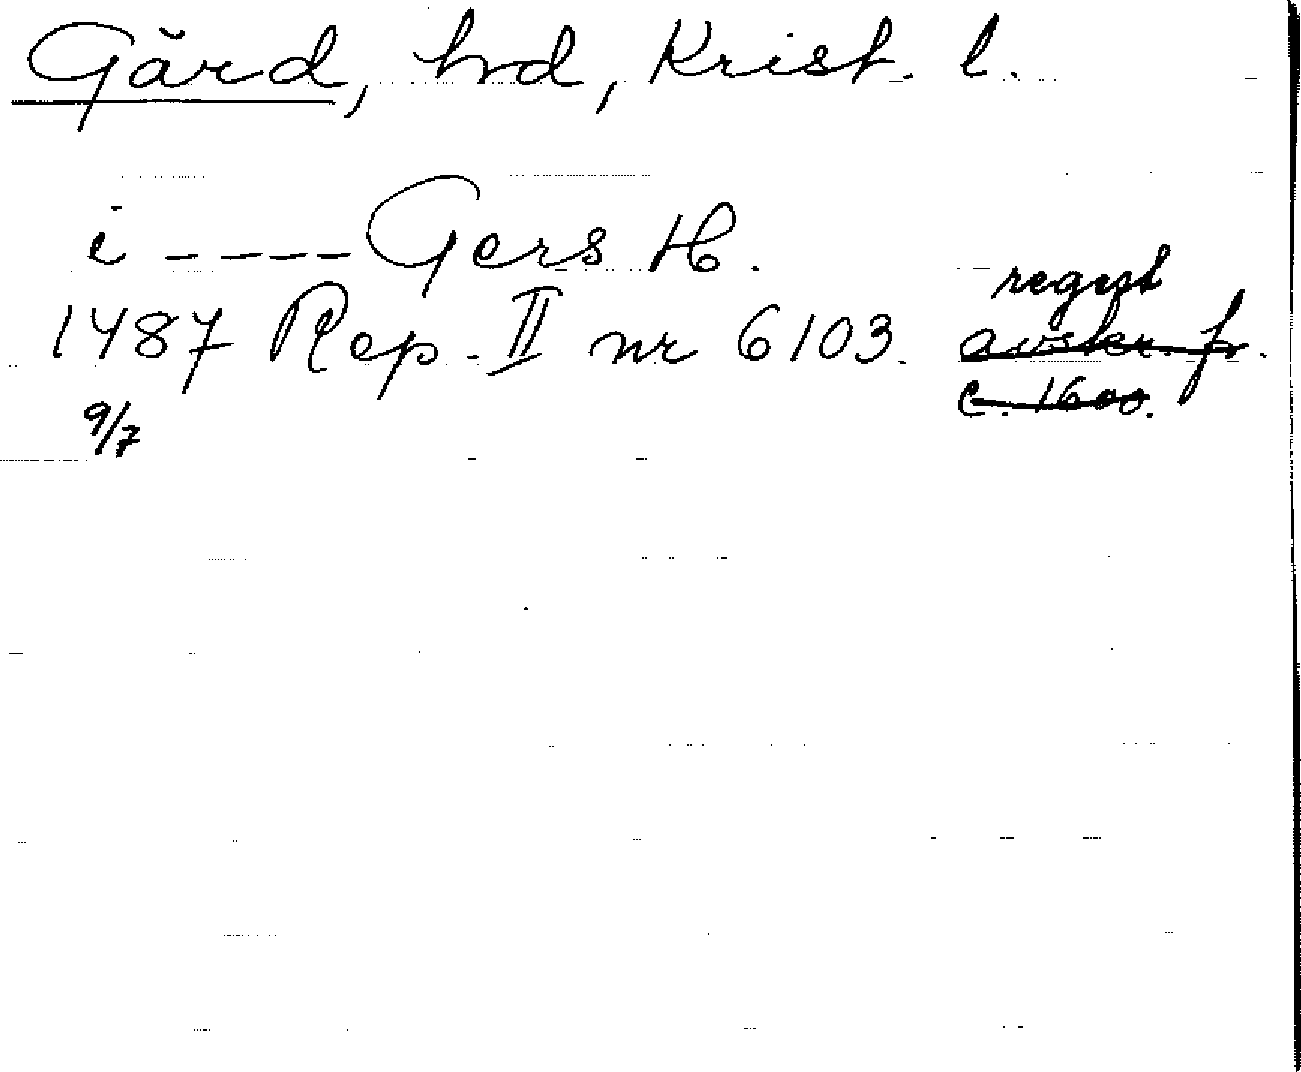 Gärd, hrd, Krist. l.
i ---- Gers H.
1487 Rep. II nr 6103. regest
avskr. fr.
c. 1600.
9/7